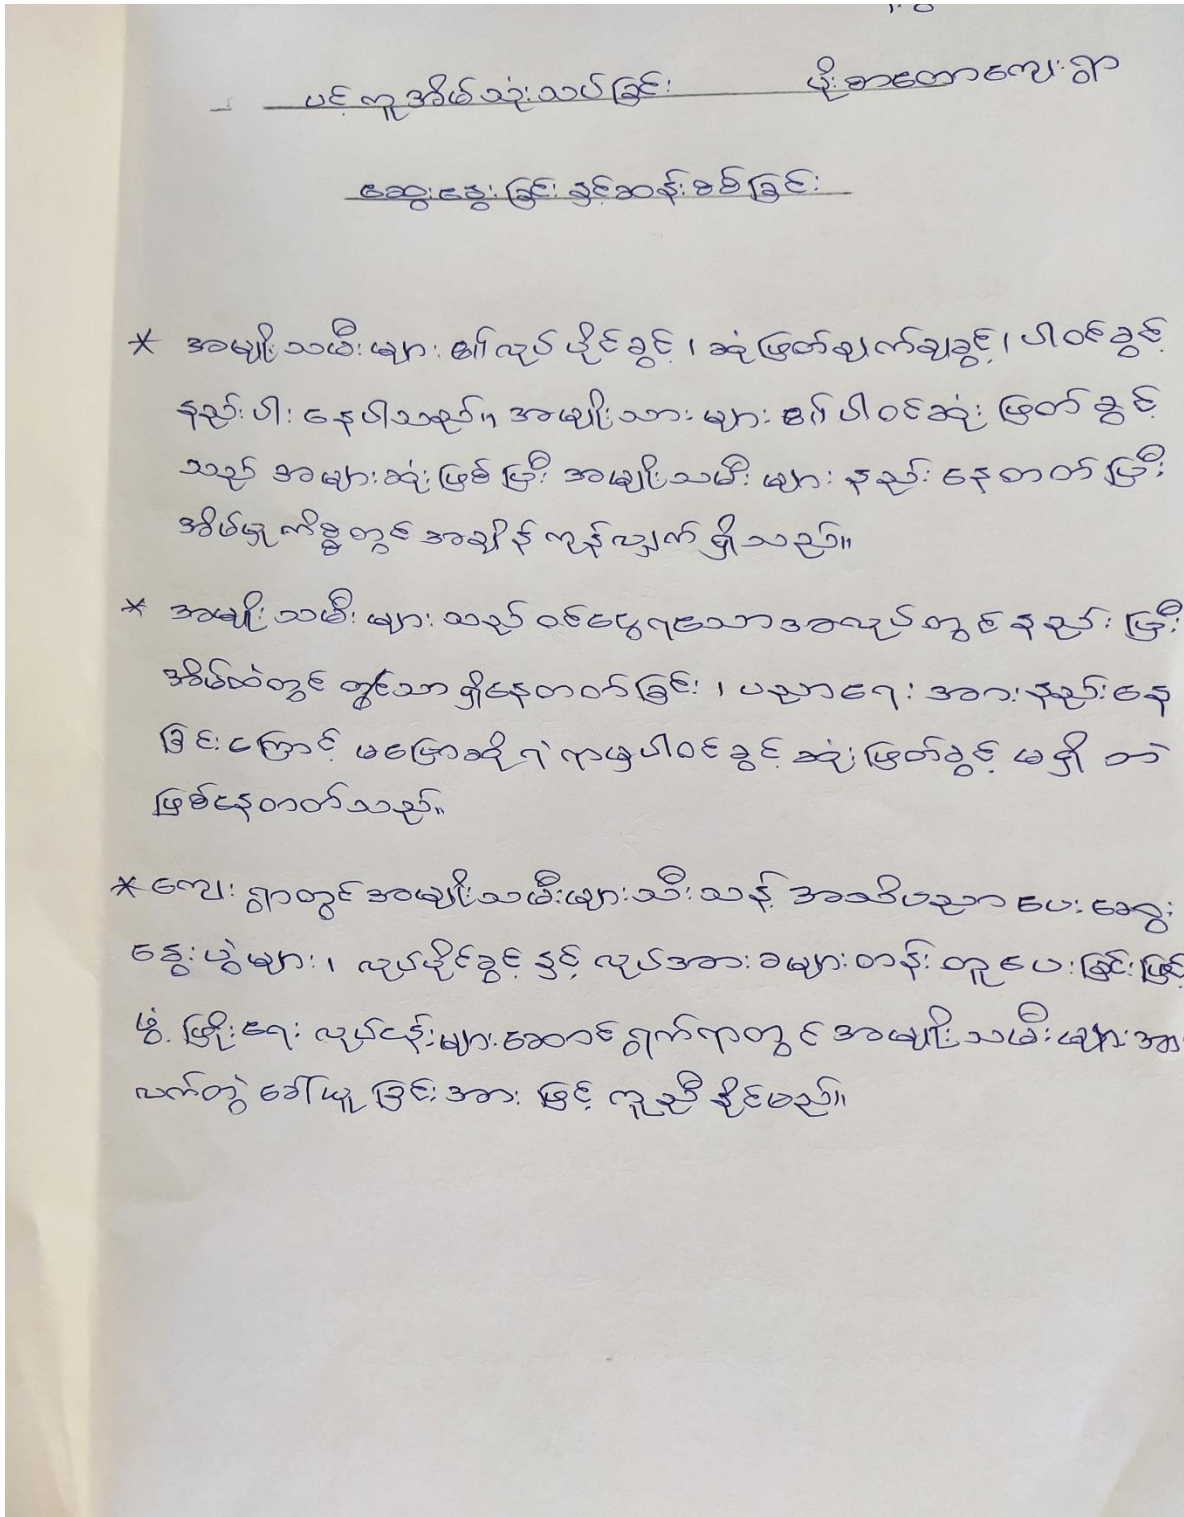 ပင့်ကူအိမ်သုံးသပ်ခြင်း ဖိုးစာတောကျေးရွာ
ဆွေးနွေးခြင်းနှင့်ဆန်းစစ်ခြင်း
* အမျိုးသမီးများ၏လုပ်ပိုင်ခွင့်၊ ဆုံဖြတ်ချက်ချခွင့်၊ ပါဝင်ခွင့်
နည်းပါးနေပါသည်။ အမျိုးသားများ၏ ပါဝင်ဆုံးဖြတ်ခွင့်
သည် အများဆုံးဖြစ်ပြီး အမျိုးသမီးများ နည်းနေတတ်ပြီး
အိမ်မှုကိစ္စတွင် အချိန်ကုန်လျှက်ရှိသည်။
* အမျိုးသမီးများသည် ဝင်ငွေရသောအလုပ်တွင် နည်းပြီး
အိမ်ထဲတွင် တွင်သာ ရှိနေတတ်ခြင်း၊ ပညာရေး အားနည်းနေ
ခြင်းကြောင့် မပြောဆိုရဲရာမှပါဝင်ခွင့် ဆုံးဖြတ်ခွင့် မရှိဘဲ
ဖြစ်နေတတ်သည်။
* ကျေးရွာတွင်အမျိုးသမီးများသီးသန့် အသိပညာပေးဆွေး
နွေးပွဲများ၊ လုပ်ပိုင်ခွင့်နှင့် လုပ်အားခများတန်းတူပေးခြင်းဖြင့်
ဖွံ့ဖြိုးရေး လုပ်ငန်းများဆောင်ရွက်ရာတွင် အမျိုးသမီးများအား
လက်တွဲခေါ်ယူခြင်းအားဖြင့် ကူညီနိုင်မည်။